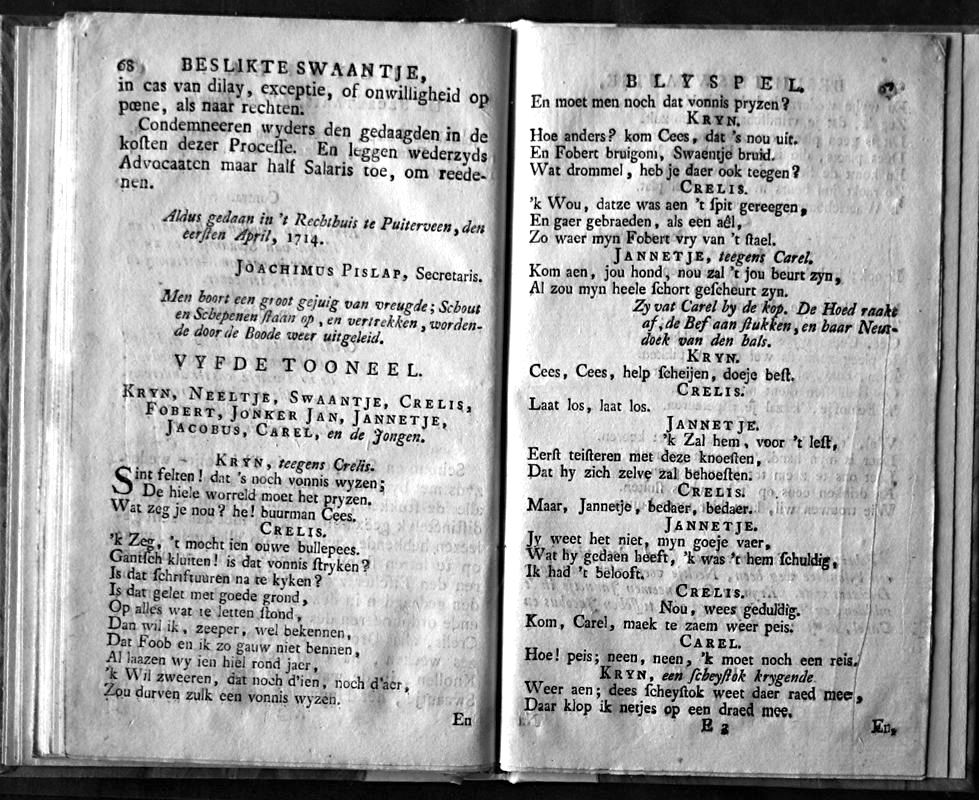 68 BESLIKTE SWAANTJE,
in cas van dilay, exceptie, of onwilligheid op
pœne, als naar rechten.
Condemneeren wyders den gedaagden in de
koſten dezer Proceſſe. En leggen wederzyds
Advocaaten maar half Salaris toe, om reede-
nen.
Aldus gedaan in 't Rechthuis te Puiterveen, den
eerſten April, 1714.
JOACHIMUS PISLAP, Secretaris.
Men hoort een groot gejuig van vreugde; Schout
en Schepenen ſtaan op, en vertrekken, worden-
de door de Boode weer uitgeleid.
VYFDE TOONEEL.
KRYN, NEELTJE, SWAANTJE, CRELIS,
FOBERT, JONKER JAN, JANNETJE,
JACOBUS, CAREL, en de Jongen.
KRYN, teegens Crelis.
Sint felten! dat 's noch vonnis wyzen;
De hiele worreld moet het pryzen.
Wat zeg je nou? he! buurman Cees.
CRELIS.
'k Zeg, 't mocht ien ouwe bullepees.
Gantſch kluiten! is dat vonnis ſtryken?
Is dat ſchriftuuren na te kyken?
Is dat gelet met goede grond,
Op alles wat te letten ſtond,
Dan wil ik, zeeper, wel bekennen,
Dat Foob en ik zo gauw niet bennen,
Al laazen wy ien hiel rond jaer,
'k Wil zweeren, dat noch d'ien, noch d'aer,
Zou durven zulk een vonnis wyzen.
En
BLYSPEL.
En moet men noch dat vonnis pryzen?
KRYN.
Hoe anders? kom Cees, dat 's nou uit.
En Fobert bruigom, Swaentje bruid.
Wat drommel, heb je daer ook teegen?
CRELIS.
'k Wou, datze was aen 't ſpit gereegen,
En gaer gebraeden, als een aêl,
Zo waer myn Fobert vry van 't ſtael.
JANNETJE, teegens Carel.
Kom aen, jou hond, nou zal 't jou beurt zyn,
Al zou myn heele ſchort geſcheurt zyn.
Zy vat Carel by de kop. De Hoed raakt
af, de Bef aan ſtukken, en haar Neus-
doek van den hals.
KRYN.
Cees, Cees, help ſcheijen, doeje beſt.
CRELIS.
Laat los, laat los.
JANNETJE.
'k Zal hem, voor 't leſt,
Eerſt teiſteren met deze knoeſten,
Dat hy zich zelve zal behoeſten.
CRELIS.
Maar, Jannetje, bedaer, bedaer.
JANNETJE.
Jy weet het niet, myn goeje vaer,
Wat hy gedaen heeft, 'k was 't hem ſchuldig,
Ik had 't belooft.
CRELIS.
Nou, wees geduldig.
Kom, Carel, maek te zaem weer peis.
CAREL.
Hoe! peis; neen, neen, 'k moet noch een reis.
KRYN, een ſcheyſtok krygende.
Weer aen; dees ſcheyſtok weet daer raed mee,
Daar klop ik netjes op een draed mee.
E 3 En,